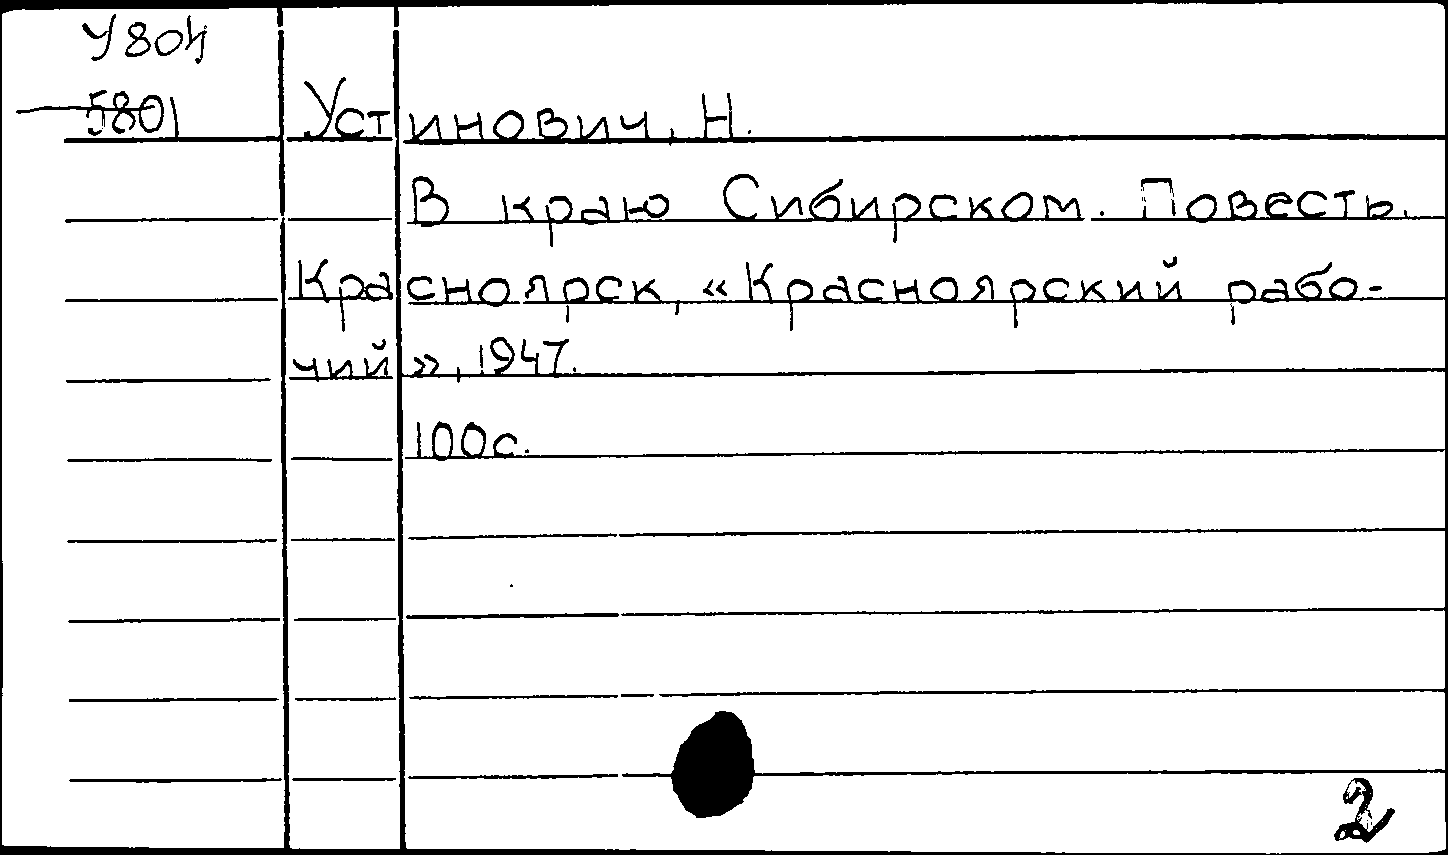 У804
5801
Устинович, Н.
В краю Сибирском. Повесть.
Красноярск, «Красноярский рабо-
чий», 1947.
100с.
2